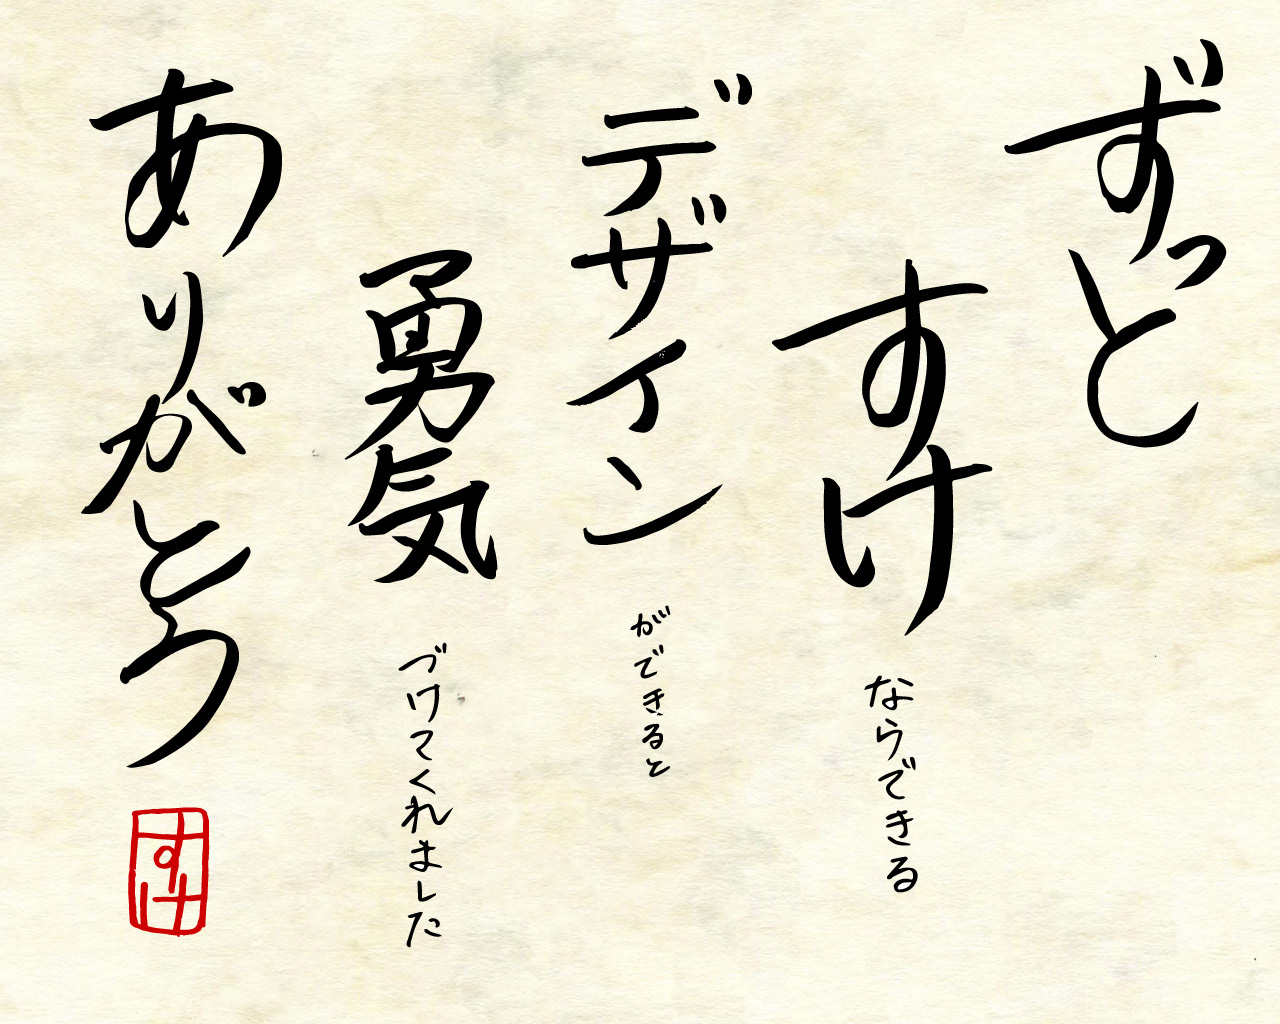 ずっと
すけならできる
デザインができると
勇気づけてくれました
ありがとう
すけ